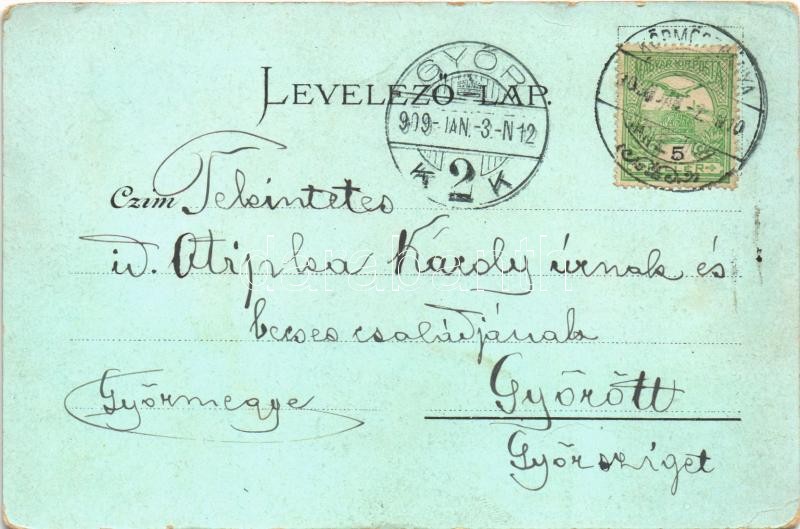 LEVELEZŐ-LAP.
GYŐR
909-JAN.-3.-N 12
K 2 K
KÖRMÖCZBÁNYA
MAGYAR KIR. POSTA
5
Czím Tekintetes
id. Stipka Károly úrnak és
becses családjának
Győrött
Győrmegye
Győrsziget
darabanth